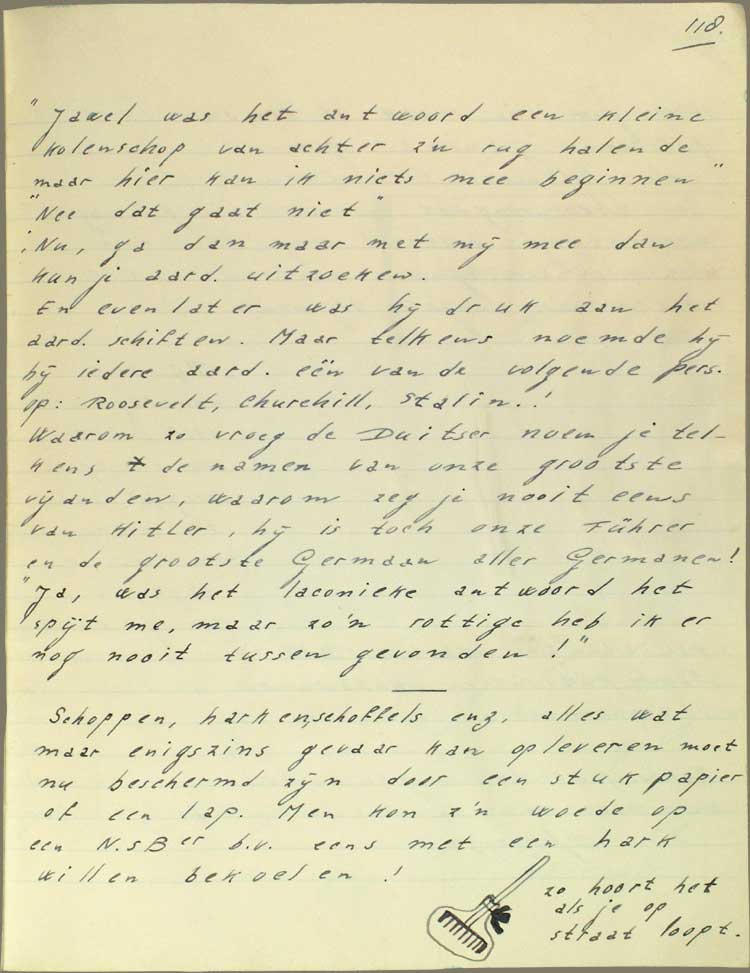 118.
"Jawel was het antwoord een kleine
kolenschop van achter z'n rug halende
maar hier kan ik niets mee beginnen"
"Nee dat gaat niet"
"Nu, ga dan maar met mij mee dan
kun je aard. uitzoeken.
En even later was hij druk aan het
aard. schiften. Maar telkens noemde hij
bij iedere aard. eën van de volgende pers.
op: Roosevelt, Churchill, Stalin..!
Waarom zo vroeg de Duitser noem je tel-
kens de namen van onze grootste
vijanden, waarom zeg je nooit eens
van Hitler, hij is toch onze Führer
en de grootste Germaan aller Germanen!
"Ja, was het laconieke antwoord het
spijt me, maar zo'n rottige heb ik er
nog nooit tussen gevonden!"
Schoppen, harken, schoffels enz. alles wat
maar enigszins gevaar kan opleveren moet
nu beschermd zijn door een stuk papier
of een lap. Men kon z'n woede op
een N.S.Ber b.v. eens met een hark
willen bekoelen!
zo hoort het
als je op
straat loopt.